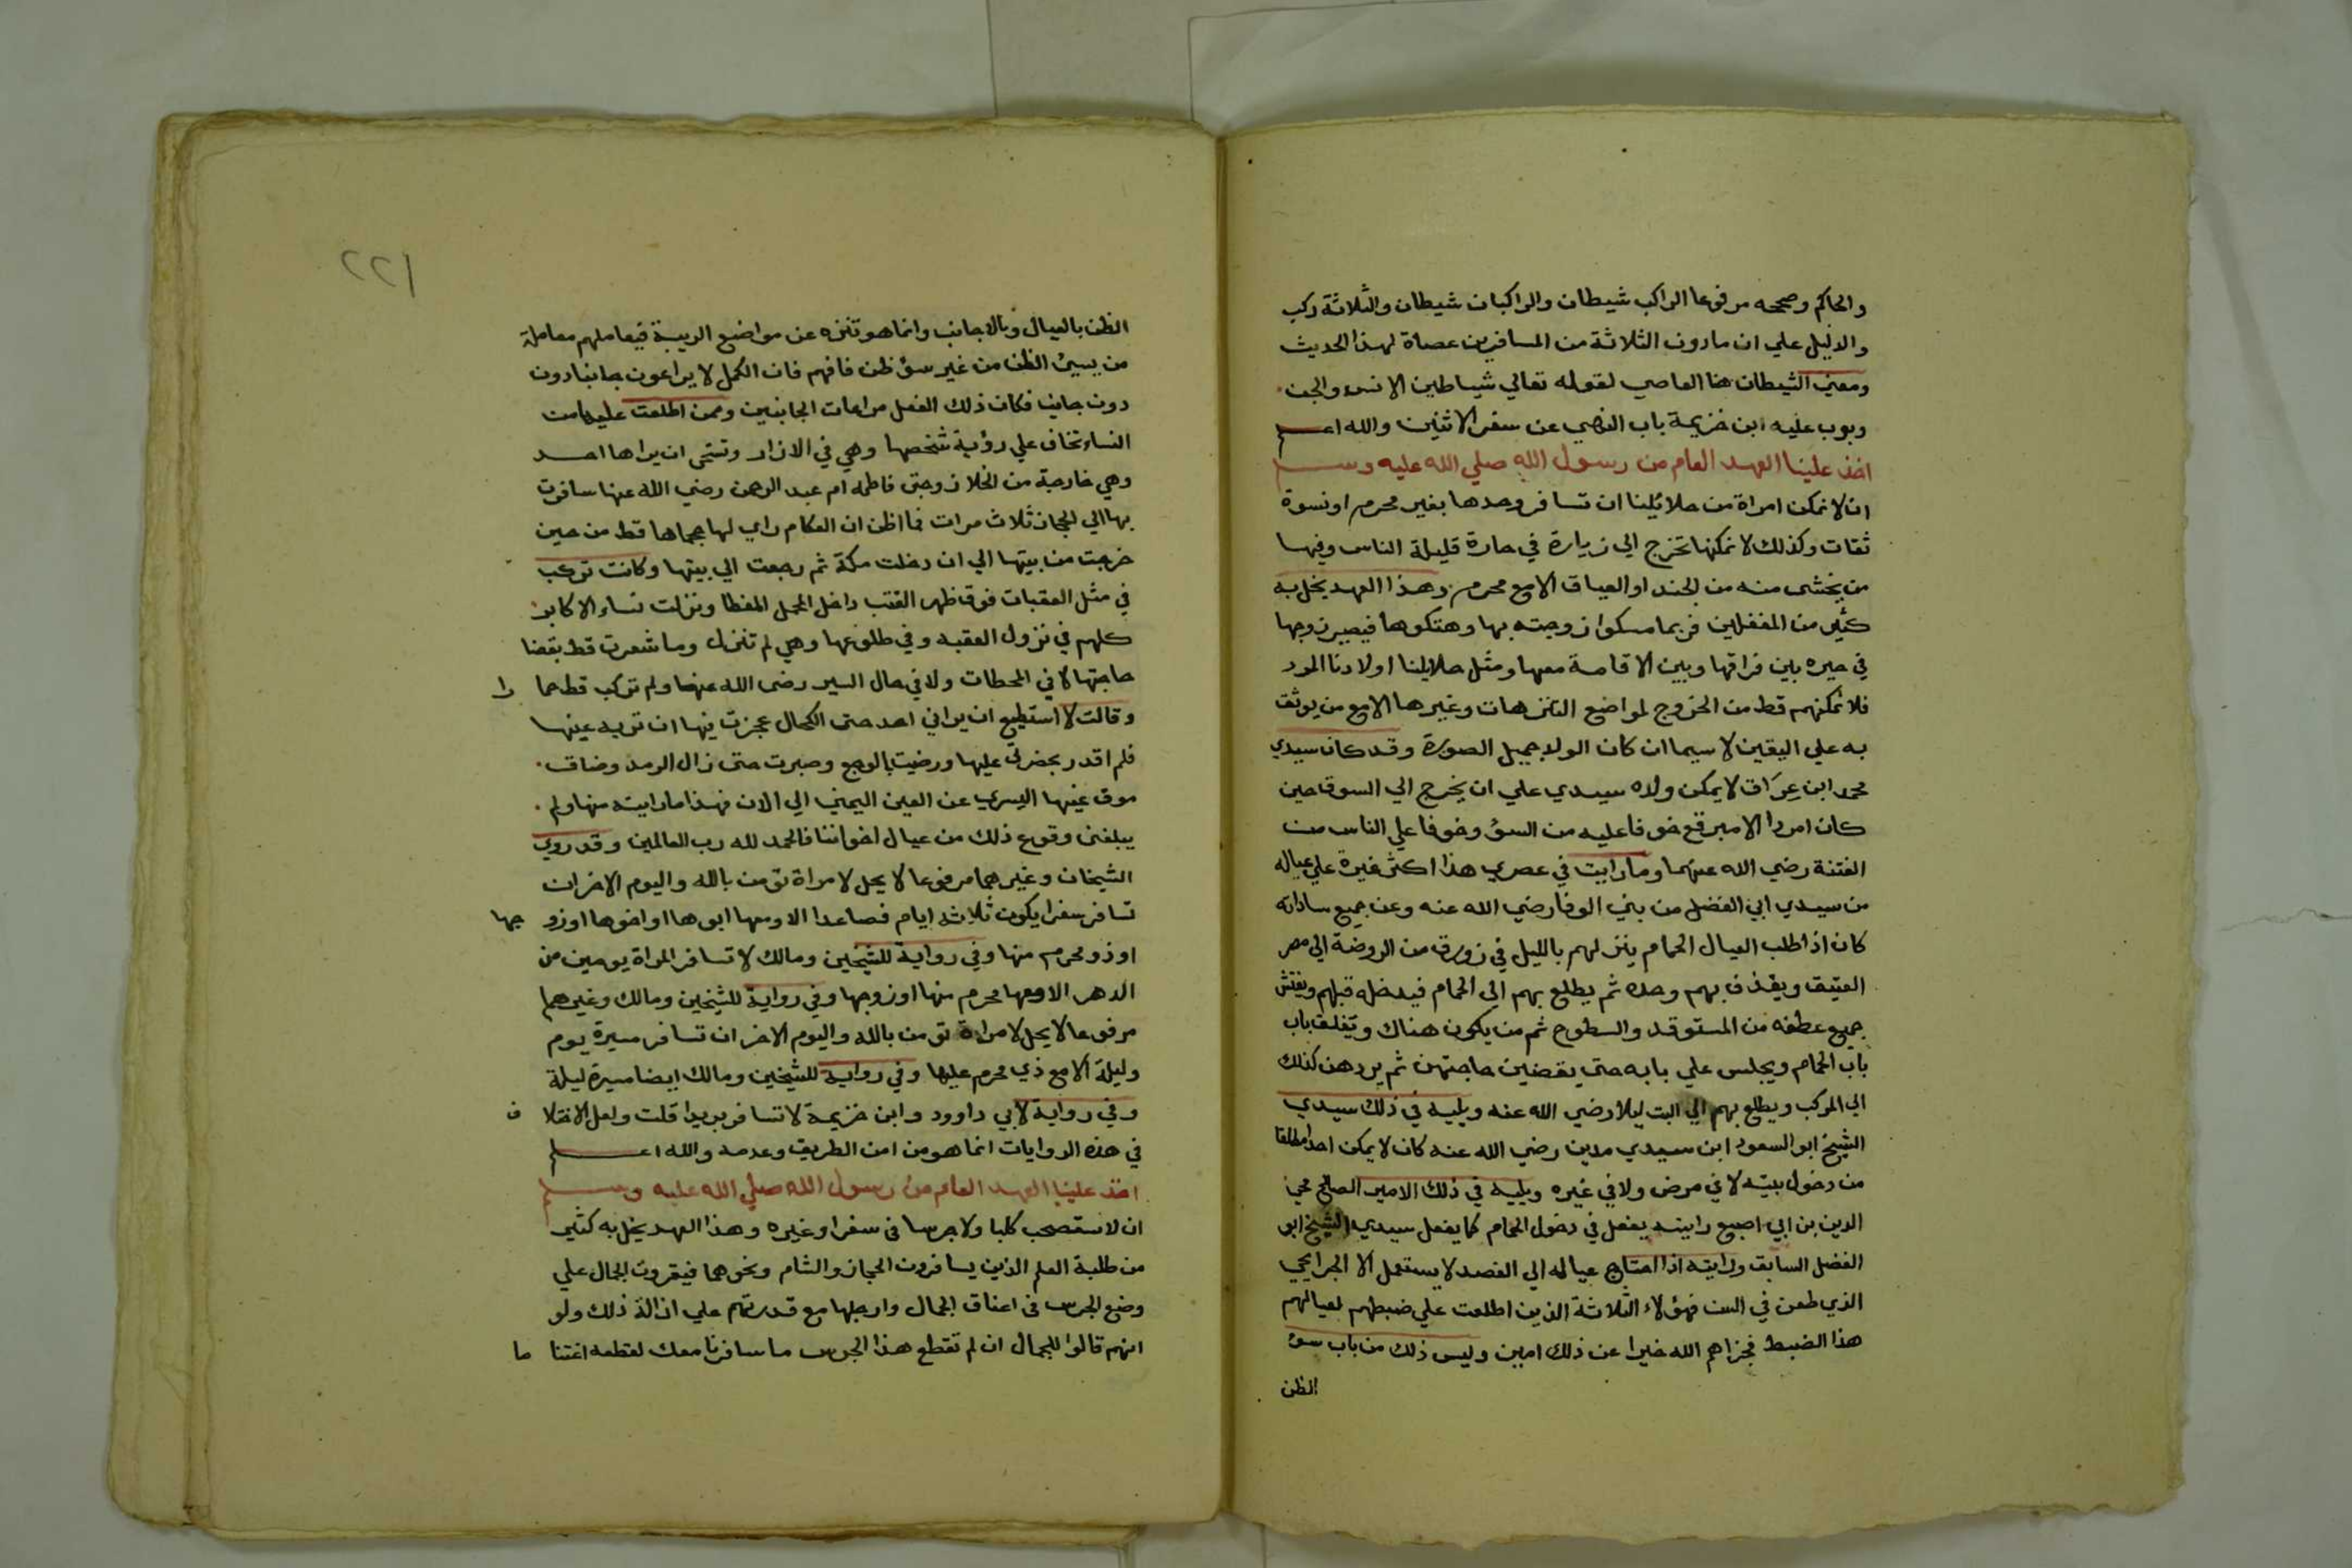 والحاكم وصححه مرفوعا الراكب شيطان والراكبان شيطان والثلاثة ركب
والدليل علي ان مادون الثلاثة من المسافرين عصاة لهذا الحديث
ومعني الشيطان هنا العاصي لقوله تعالي شياطين الانس والجن
وبوب عليه ابن خزيمة باب النهي عن سفر الاثنين والله اعلم
اخذ علينا العهد العام من رسول الله صلي الله عليه وسلم
ان لا نمكن امراة من حلائلنا ان تسافر وحدها بغير محرم او نسوة
ثقات وكذلك لا نمكنها تخرج الي زيارة في حارة قليلة الناس وفيها
من يخشى منه من الجند او العياق الا مع محرم وهذا العهد يخل به
كثير من المغفلين فربما مسكوا زوجته بها وهتكوها فيصير زوجها
في حيره بين فراقها وبين الاقامة معها ومثل حلايلنا اولادنا المرد
فلا نمكنهم قط من الخروج لمواضع التنزهات وغيرها الا مع من يوثق
به علي اليقين لا سيما ان كان الولد جميل الصورة وقد كان سيدي
محمد ابن عِرَاق لا يمكن ولده سيدي علي ان يخرج الي السوق حين
كان امردا الا مبرقع خوفا عليه من السؤ وخوفا علي الناس من
الفتنة رضي الله عنهما وما رايت في عصري هذا اكثر غيرة علي عياله
من سيدي ابي الفضل من بني الوفا رضي الله عنه وعن جميع ساداته
كان اذا طلب العيال الحمام ينزلهم بالليل في زورق من الروضة الي مصر
العتيق ويقذف بهم وحده ثم يطلع بهم الي الحمام فيدخله قبلهم ويفتش
جميع عطفه من المستوقد والسطوح ثم من يكون هناك ويغلق باب
باب الحمام ويجلس علي بابه حتي يقضين حاجتهن ثم يردهن كذلك
الي المركب ويطلع بهم الي البت ليلا رضي الله عنه ويليه في ذلك سيدي
الشيخ ابو السعود ابن سيدي مدين رضي الله عنه كان لا يمكن احدا مطلقا
من دخول بيته لا في مرض ولا في غيره ويليه في ذلك الامير الصالح محي
الدين بن ابي اصبع رايته يفعل في دخول الحمام كما يفعل سيدي الشيخ ابو
الفضل السابق ورايته اذا احتاج عياله الي الفصد لا يستعمل الا الجرايحي
الذي طعن في السن فهؤلاء الثلاثة الذين اطلعت علي ضبطهم لعيالهم
هذا الضبط فجزاهم الله خيرا عن ذلك امين وليس ذلك من باب سوء
الظن
١٢٢
الظن بالعيال وبالاجانب وانما هو تنزه عن مواضع الريبة فيعاملهم معاملة
من يسيئ الظن من غير سؤ ظن فافهم فان الكمل لا يراعون جانبا دون
دون جانب فكان ذلك الفعل مراعات الجانبين وممن اطلعت عليها من
النساء تخاف علي رؤية شخصها وهي في الازار وتستحي ان يراها احد
وهي خارجة من الخلا زوجتي فاطمه ام عبد الرحمن رضي الله عنها سافرت
بها الي الحجاز ثلاث مرات فما اظن ان العكام راي لها حجماها قط من حين
خرجت من بيتها الي ان دخلت مكة ثم رجعت الي بيتها وكانت تركب
في مثل العقبات فوق ظهر القتب داخل المحمل المغطا ونزلت نساء الاكابر
كلهم في نزول العقبه وفي طلوعها وهي لم تنزل وما شعرت قط بقضا
حاجتها لا في المحطات ولا في حال السير رضي الله عنها ولم تركب قط حمارا
وقالت لا استطيع ان يراني احد حتى الكحال عجزت فيها ان توريه عينها
فلم اقدر بحضرتي عليها ورضيت بالوجع وصبرت حتى زال الرمد وضاق
موق عينها اليسري عن العين اليمني الي الان فهذا ما رايته منها ولم
يبلغني وقوع ذلك من عيال اخواننا فالحمد لله رب العالمين وقد روي
الشيخان وغيرهما مرفوعا لا يحل لامراة تؤمن بالله واليوم الاخر ان
تسافر سفرا يكون ثلاثة ايام فصاعدا الا ومعها ابوها او اخوها او زوجها
او ذو محرم منها وفي رواية للشيخين ومالك لا تسافر المراة يومين من
الدهر الا ومعها محرم منها او زوجها وفي رواية للشيخين ومالك وغيرهما
مرفوعا لا يحل لامراة تومن بالله واليوم الاخر ان تسافر مسيرة يوم
وليلة الا مع ذي محرم عليها وفي رواية للشيخين ومالك ايضا مسيرة ليلة
وفي رواية لابي داوود وابن خزيمة لا تسافر بريدا قلت ولعل الاختلاف
في هذه الروايات انما هو من امن الطريق وعدمه والله اعلم
اخذ علينا العهد العام من رسول الله صلي الله عليه وسلم
ان لا نستصحب كلبا ولا جرسا في سفر او غيره وهذا العهد يخل به كثير
من طلبة العلم الذين يسافرون الحجاز والشام ونحوهما فيقرون الجمال علي
وضع الجرس في اعناق الجمال وارجلها مع قدرتهم علي ازالة ذلك ولو
انهم قالوا للجمال ان لم تقطع هذا الجرس ما سافرنا معك لقطعه اغتناما